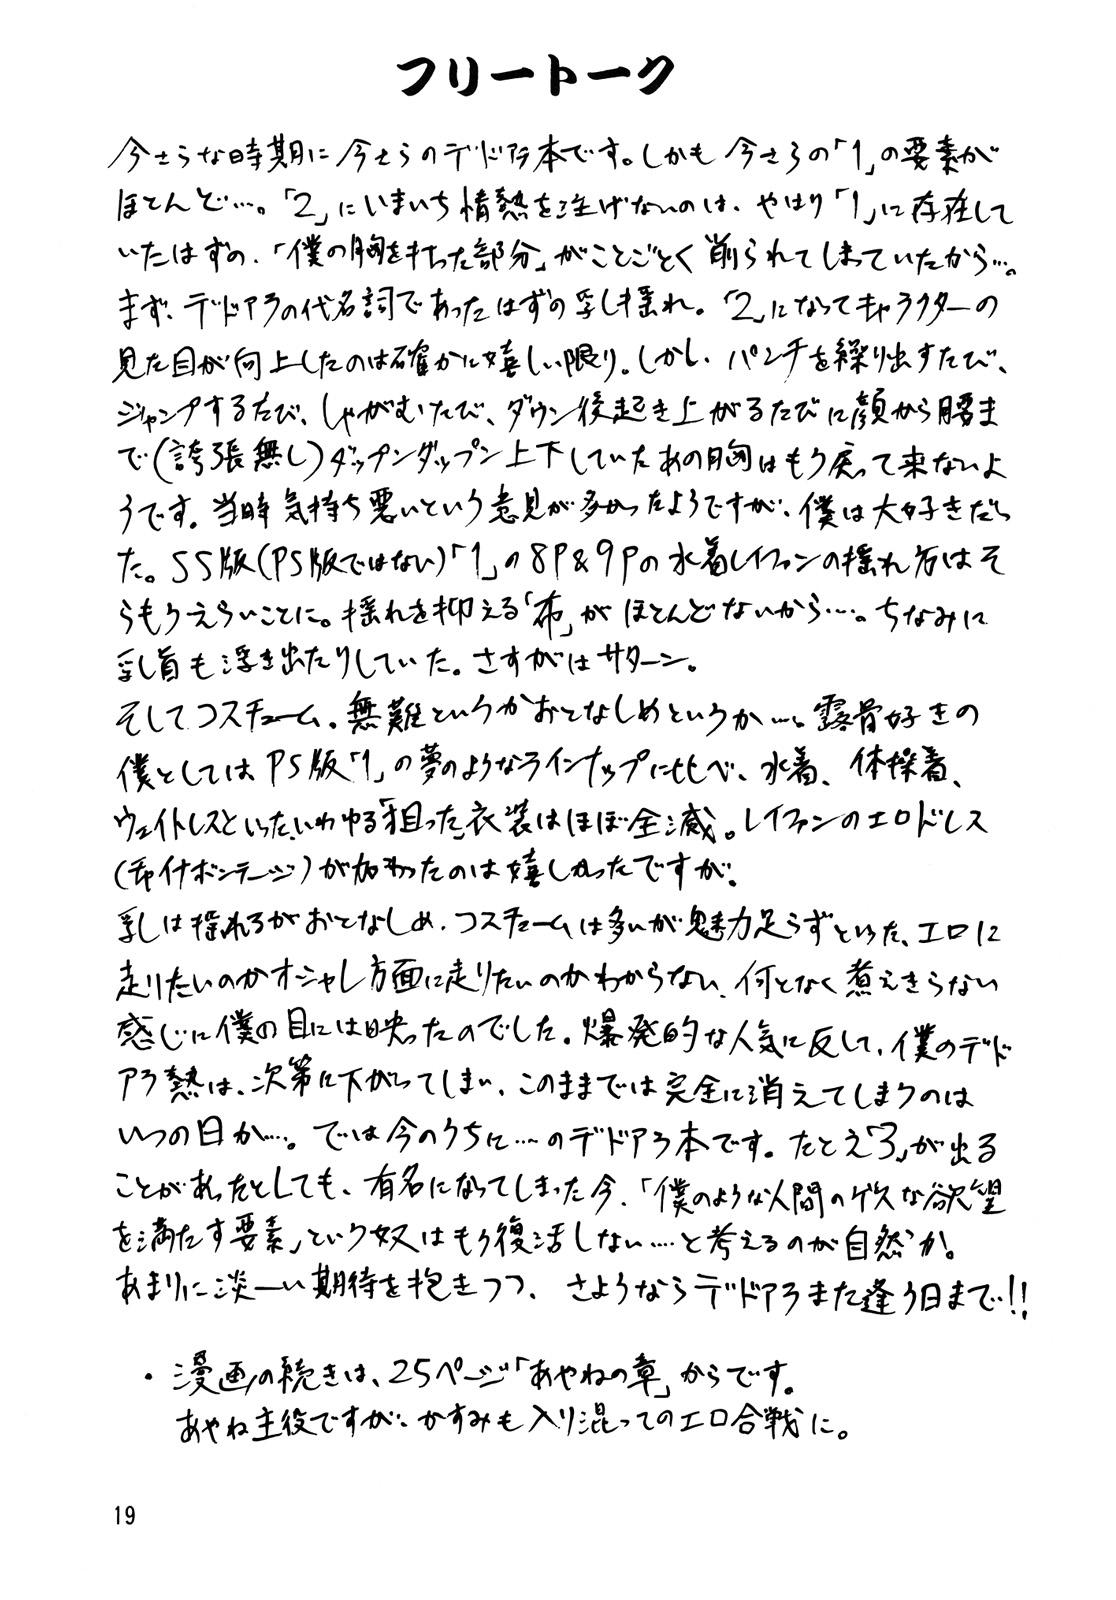 フリートーク
今さらな時期に今さらのデドアラ本です。しかも今さらの「1」の要素が
ほとんど…。「2」にいまいち情熱を注げないのは、やはり「1」に存在して
いたはずの、「僕の胸を打った部分」がことごとく削られてしまっていたから…。
まず、デドアラの代名詞であったはずの乳揺れ。「2」になってキャラクターの
見た目が向上したのは確かに嬉しい限り。しかし、パンチを繰り出すたび、
ジャンプするたび、しゃがむたび、ダウン後起き上がるたびに顔から腰ま
で(誇張無し)ダップンダップン上下していたあの胸はもう戻って来ないよ
うです。当時気持ち悪いという意見が多かったようですが、僕は大好きだっ
た。SS版(PS版ではない)「1」の8P&9Pの水着レイファンの揺れ方はそ
らもうえらいことに。揺れを抑える「布」がほとんどないから…。ちなみに
乳首も浮き出たりしていた。さすがはサターン。
そしてコスチューム。無難というかおとなしめというか…。露骨好きの
僕としてはPS版「1」の夢のようなラインナップに比べ、水着、体操着、
ウェイトレスといった、いわゆる「狙った」衣装はほぼ全滅。レイファンのエロドレス
(チャイナボンテージ)が加わったのは嬉しかったですが。
乳は揺れるがおとなしめ、コスチュームは多いが魅力足らずといった、エロに
走りたいのかオシャレ方面に走りたいのかわからない、何となく煮えきらない
感じに僕の目には映ったのでした。爆発的な人気に反して、僕のデド
アラ熱は、次第に下がってしまい、このままでは完全に消えてしまうのは
いつの日か…。では今のうちに…のデドアラ本です。たとえ「3」が出る
ことがあったとしても、有名になってしまった今、「僕のような人間のゲスな欲望
を満たす要素」という奴はもう復活しない…と考えるのが自然か。
あまりに淡ーい期待を抱きつつ、さようならデドアラまた逢う日まで!!
・漫画の続きは、25ページ「あやねの章」からです。
あやね主役ですが、かすみも入り混ってのエロ合戦に。
19